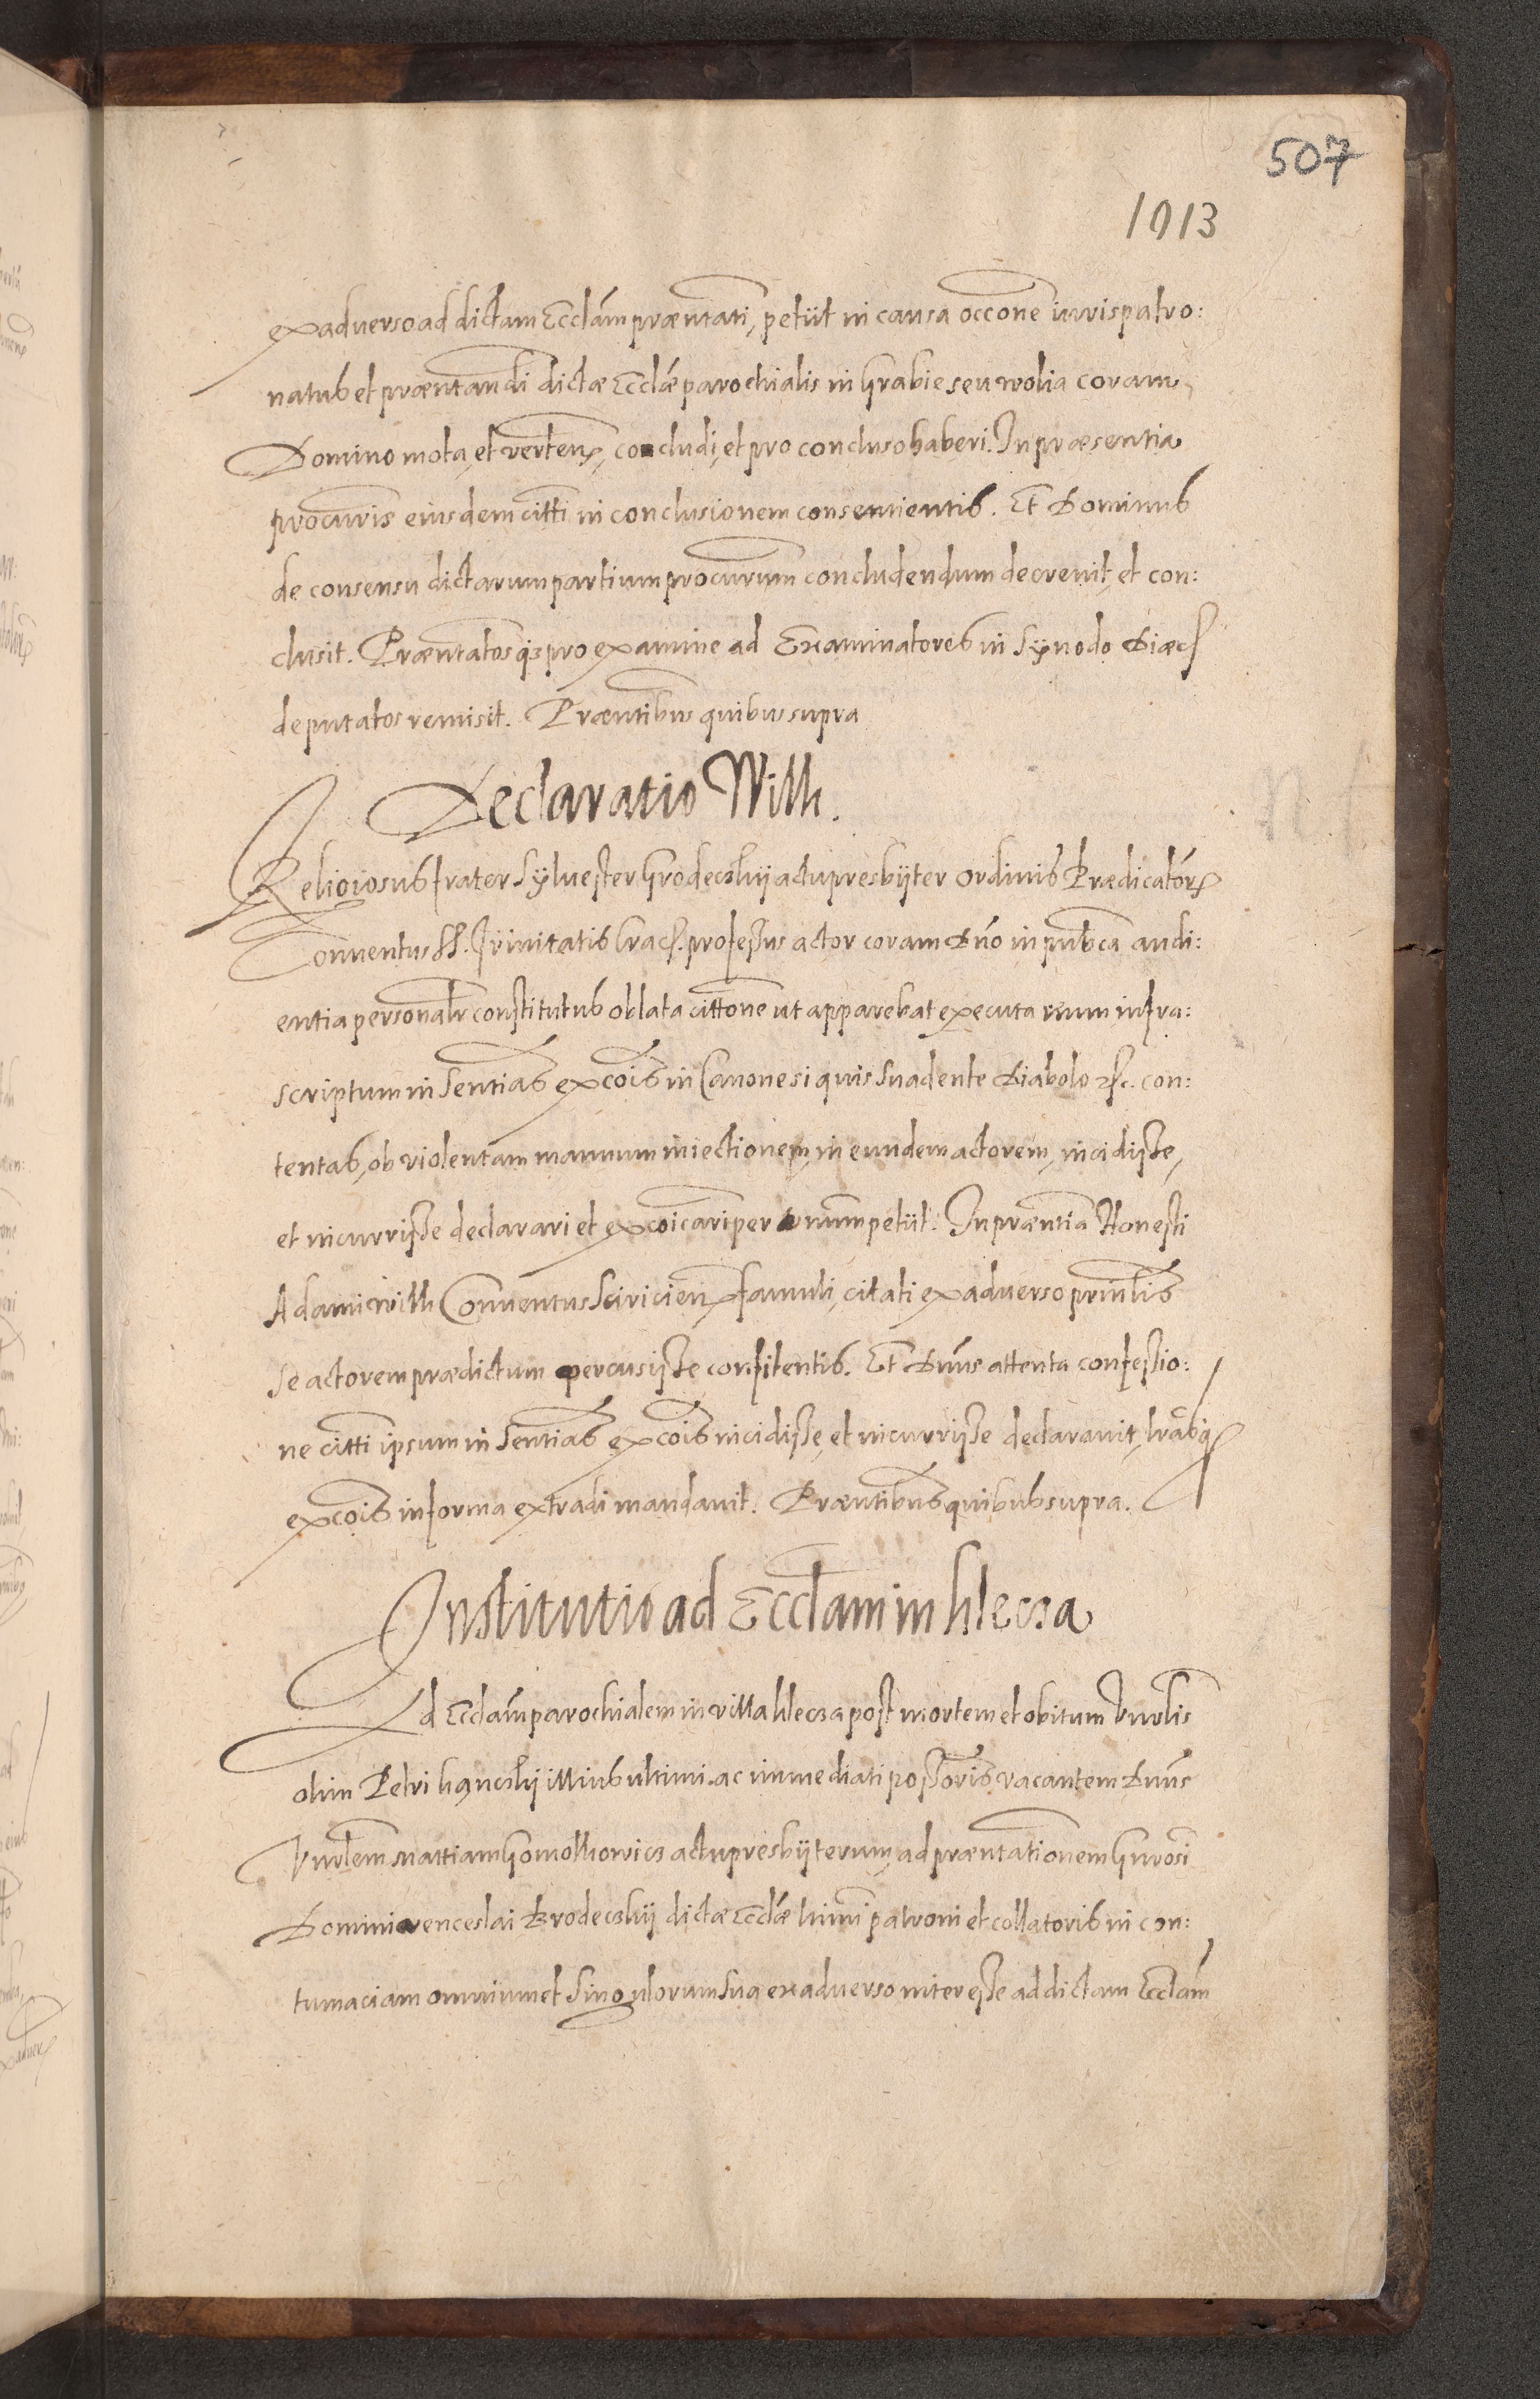 507
1013
ex adverso ad dictam Ecclām præntati, petiit in causa occone iurispatro:
natus et præntandi dictæ Ecclæ parochialis in Grabie seu wolia coram
Domino mota, et verten, concludi, et pro concluso haberi. In præsentia
procuris eiusdem citti in conclusionem consentientis. Et Dominus
de consensu dictarum partium procurum concludendum decrevit, et con:
clusit. Præntatosq3 pro examine ad Examinatores in Synodo Diæc
deputatos remisit. Præntibus quibus supra
Declaratio Wilk.
Religiosus frater Sylvester Grodeczkij actu presbyter ordinis Prædicatór
Conventus SS. Trinitatis Crac. professus actor coram Dño in pubca audi:
entia personalr constitutus oblata cittone ut apparebat executa reum infra:
scriptum in sentias excois in Canone si quis suadente Diabolo etc. con:
tentas, ob violentam manuum iniectionem, in eundem actorem, incidisse,
et incurrisse declarari et excoicari per Dnum petiit. In præntia Honesti
Adami wilk Conventus Scivicien famuli, citati ex adverso prinlis
se actorem prædictum percusisse confitentis. Et Dnus attenta confessio:
ne citti ipsum in sentias excois incidisse, et incurrisse declaravit, lrasq
excois in forma extradi mandavit. Præntibus quibus supra.
Institutio ad Ecclam in klecza
Ad Ecclam parochialem in villa klecza post mortem et obitum Vnrlis
olim Petri hanczkij illius ultimi ac immediati possoris vacantem Dnus
Vnrlem Mattiam Gomolkowicz actu presbyterum, ad præntationem Gnrosi
Domini venceslai Brodeczkij dictæ Ecclæ himi patroni et collatoris in con:
tumaciam omnium et singulorum sua ex adverso interesse ad dictam Ecclam